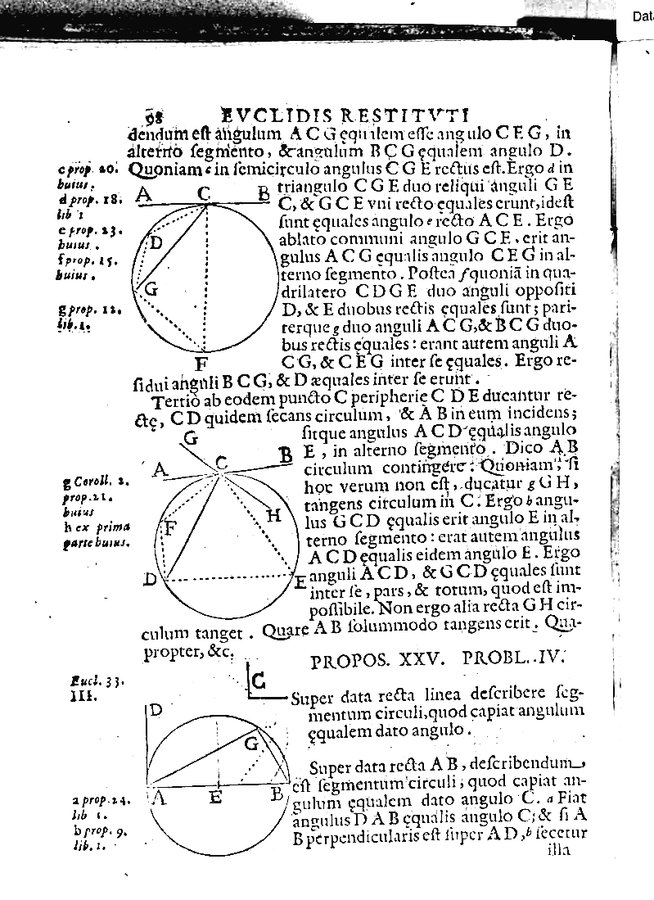 Dat
98 EVCLIDIS RESTITVTI
dendum est angulum A C G ęqualem esse angulo C E G, in
alterno segmento, & angulum B C G ęqualem angulo D.
c prop. 20. huius.
d prop. 18. lib 1
e prop. 23. huius.
f prop. 15. huius.
g prop. 12. lib. 1.
Quoniam c in semicirculo angulus C G E rectus est. Ergo d in
triangulo C G E duo reliqui anguli G E
C, & G C E vni recto ęquales erunt, idest
sunt ęquales angulo e recto A C E. Ergo
ablato communi angulo G C E, erit an-
gulus A C G ęqualis angulo C E G in al-
terno segmento. Postea f quoniã in qua-
drilatero C D G E duo anguli oppositi
D, & E duobus rectis ęquales sunt; pari-
terque g duo anguli A C G, & B C G duo-
bus rectis ęquales: erant autem anguli A
C G, & C E G inter se ęquales. Ergo re-
sidui anguli B C G, & D æquales inter se erunt.
A C B
D
G
F
Tertio ab eodem puncto C peripherię C D E ducantur re-
ctę, C D quidem secans circulum, & A B in eum incidens;
sitque angulus A C D ęqualis angulo
E, in alterno segmento. Dico A B
circulum contingere: Quoniam, si
hoc verum non est, ducatur g G H,
tangens circulum in C. Ergo h angu-
lus G C D ęqualis erit angulo E in al-
terno segmento: erat autem angulus
A C D ęqualis eidem angulo E. Ergo
anguli A C D, & G C D ęquales sunt
inter se, pars, & totum, quod est im-
possibile. Non ergo alia recta G H cir-
culum tanget. Quare A B solummodo tangens erit. Qua-
propter, &c.
g Coroll. 2.
prop. 21.
huius
h ex prima
parte huius.
G
A C B
F H
D E
PROPOS. XXV. PROBL. IV.
Eucl. 33.
III.
Super data recta linea describere seg-
mentum circuli, quod capiat angulum
ęqualem dato angulo.
C
D
G
A E B
Super data recta A B, describendum
est segmentum circuli, quod capiat an-
gulum ęqualem dato angulo C. a Fiat
angulus D A B ęqualis angulo C; & si A
B perpendicularis est super A D, b secetur
illa
a prop. 24.
lib 1.
b prop. 9.
lib. 1.